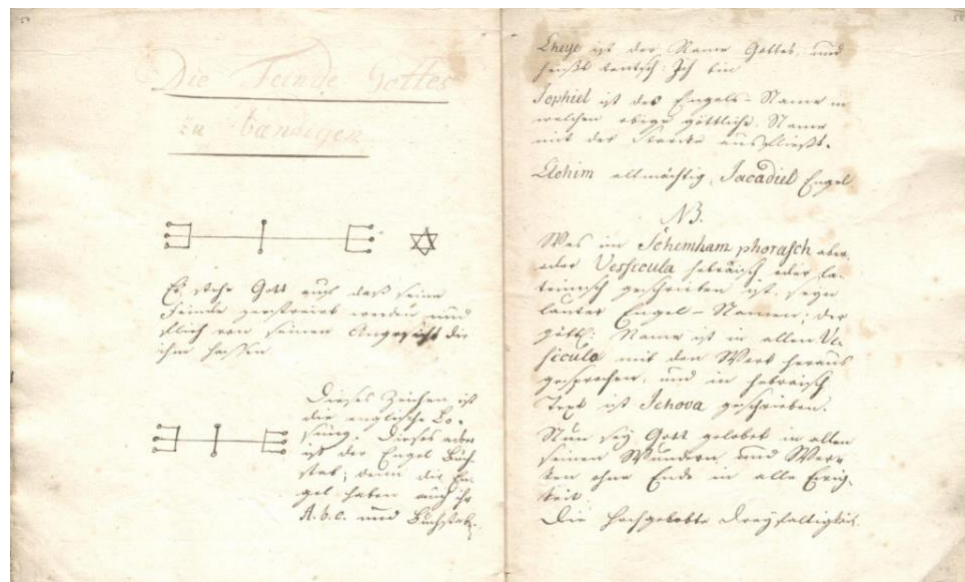 Die Feinde Gottes
zu bändigen
Es stehe Gott auf daß seine
Feinde zerstreut werden und
von seinen Angesicht die
ihm hassen
Dieses Zeichen ist
die englische Lo-
sung. Dieses aber
ist der Engel Buch-
stab; denn die En-
gel haben auch ihr
A. b. c. und Buchstab.
Eheye ist der Name Gottes, und
heißt teutsch: Ich bin
Jophiel ist des Engels-Name in
welchen obige göttliche Name
mit der Stärke ausfließt.
Elohim allmächtig, Jacadiel Engel
NB.
Was im Schemham phorasch aber
oder Vessicula hebräisch oder la-
teinisch geschrieben ist, seyn
lauter Engel-Namen; der
göttl: Name ist in allen Ve
sicula mit den Wort heraus
gesprochen, und in hebräisch
Text ist Jehova geschrieben.
Nun sey Gott gelobet in allen
seinen Wundern und Wer-
ken ohne Ende in alle Ewig-
keit
Die Hochgelobte Dreyfaltigkeit